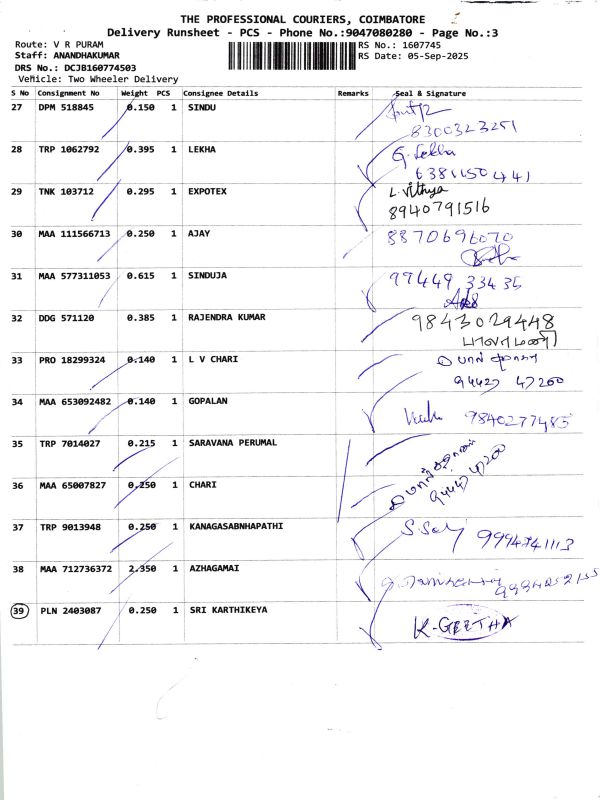 THE PROFESSIONAL COURIERS, COIMBATORE
Delivery Runsheet - PCS - Phone No.:9047080280 - Page No.:3
Route: V R PURAM
RS No.: 1607745
Staff: ANANDHAKUMAR
RS Date: 05-Sep-2025
DRS No.: DCJB160774503
Vehicle: Two Wheeler Delivery
S No Consignment No Weight PCS Consignee Details Remarks Seal & Signature
27 DPM 518845 0.150 1 SINDU
8300323251
28 TRP 1062792 0.395 1 LEKHA G. Lekha
6381150441
29 TNK 103712 0.295 1 EXPOTEX L. Vithya
8940791516
30 MAA 111566713 0.250 1 AJAY 8870696070
31 MAA 577311053 0.615 1 SINDUJA 99449 33435
32 DDG 571120 0.385 1 RAJENDRA KUMAR 9843029448
பாலாமணி
33 PRO 18299324 0.140 1 L V CHARI
94427 47200
34 MAA 653092482 0.140 1 GOPALAN 9840277485
35 TRP 7014027 0.215 1 SARAVANA PERUMAL
36 MAA 65007827 0.250 1 CHARI
94427 47200
37 TRP 9013948 0.250 1 KANAGASABNHAPATHI
38 MAA 712736372 2.350 1 AZHAGAMAI
39 PLN 2403087 0.250 1 SRI KARTHIKEYA K-GEETHA